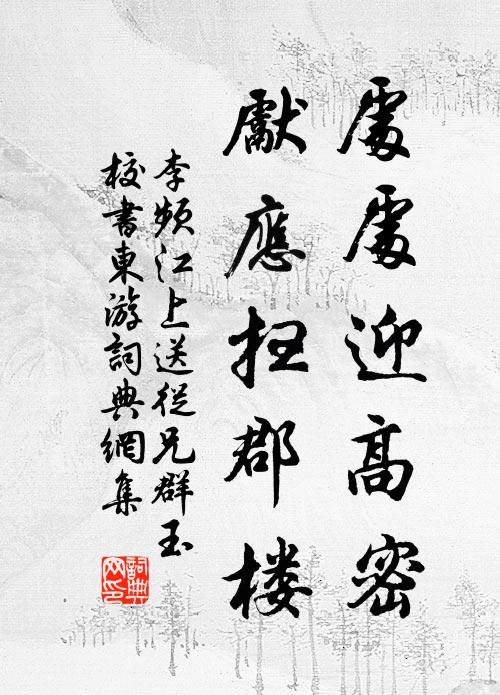 處處迎高密
獻應扫郡楼
李頻江上送從兄群玉
校書東游詞典網集
詞典网印